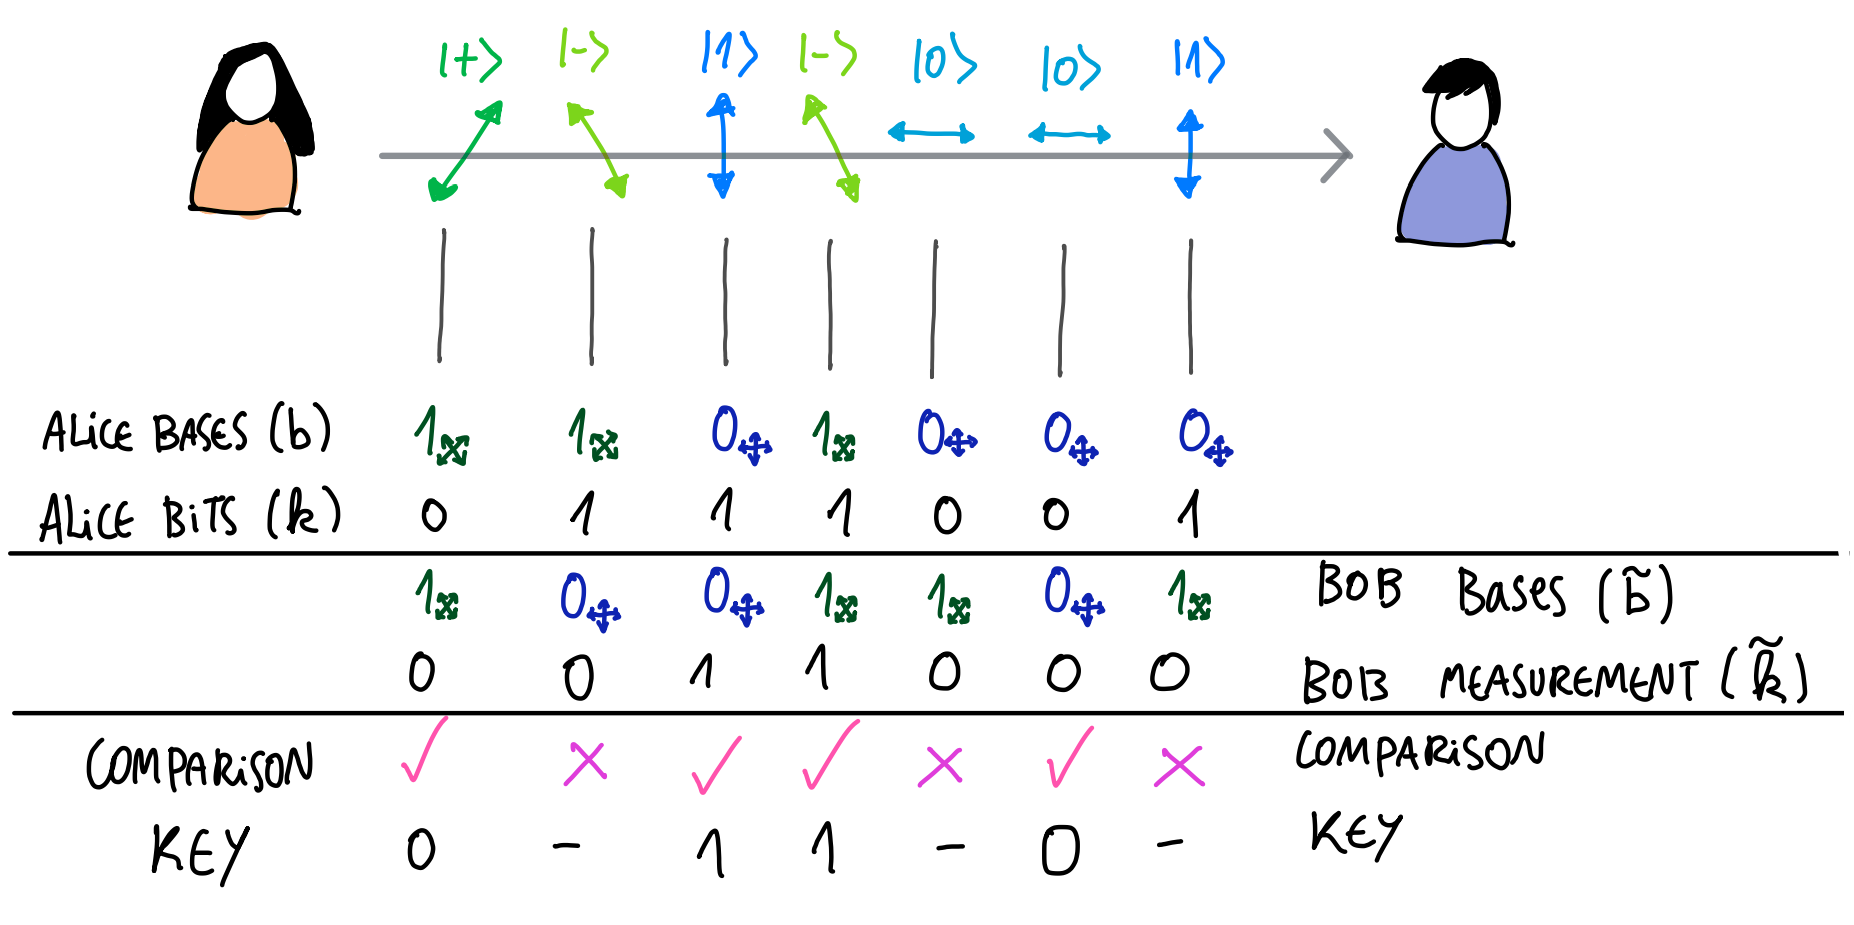 |+⟩ |-⟩ |1⟩ |-⟩ |0⟩ |0⟩ |1⟩
ALiCE BASES (b) 1 1 0 1 0 0 0
ALiCE BiTS (k) 0 1 1 1 0 0 1
1 0 0 1 1 0 1 BOB Bases (b̃)
0 0 1 1 0 0 0 BOB MEASUREMENT (k̃)
COMPARiSON ✓ × ✓ ✓ × ✓ × COMPARiSON
KEY 0 - 1 1 - 0 - KEY